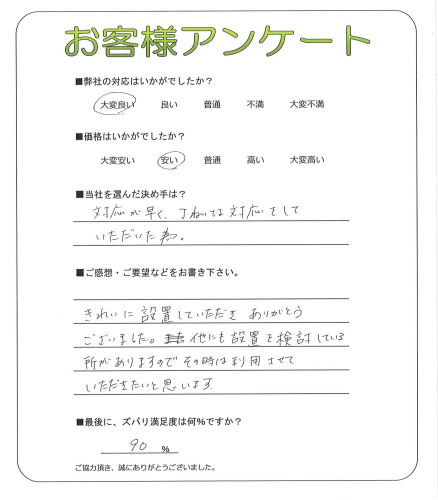 お客様アンケート
■弊社の対応はいかがでしたか?
大変良い 良い 普通 不満 大変不満
■価格はいかがでしたか?
大変安い 安い 普通 高い 大変高い
■当社を選んだ決め手は?
対応が早く、丁ねいな対応をして
いただいた為。
■ご感想・ご要望などをお書き下さい。
きれいに設置していただき ありがとう
ございました。他にも設置を検討している
所がありますので その時は利用させて
いただきたいと思います
■最後に、ズバリ満足度は何%ですか?
90 %
ご協力頂き、誠にありがとうございました。